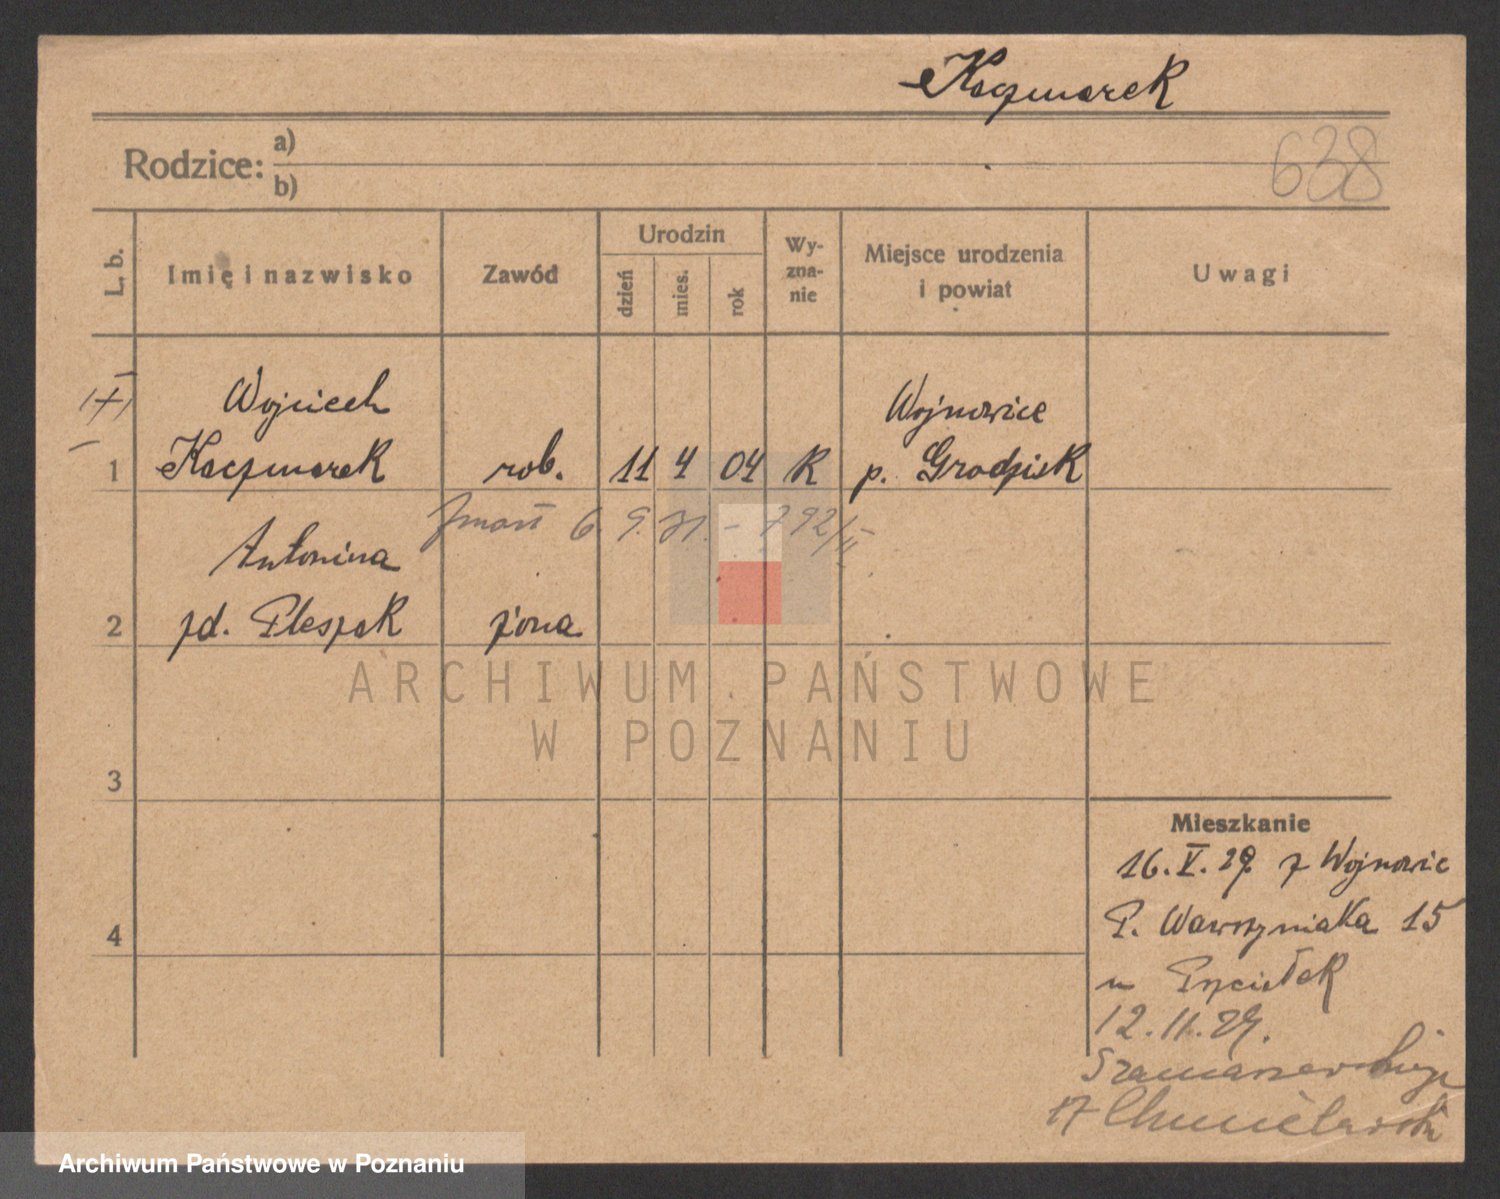 Kaczmarek
638
Rodzice: a)
b)
L. b.
Imię i nazwisko
Zawód
Urodzin
dzień
mies.
rok
Wy-
zna-
nie
Miejsce urodzenia
i powiat
Uwagi
Wojciech
Wojnowice
1 Kaczmarek rob. 11 4 04 R p. Grodzisk
Zmarł 6. 9. 31. - 792/II
Antonina
2 zd. Pleszak żona
ARCHIWUM PAŃSTWOWE
W POZNANIU
3
4
Mieszkanie
16.V.29 z Wojnowic
P. Wawrzyniaka 15
u Przciołek
12.11.29.
Szamarzewskiego
17 Chmielewski
Archiwum Państwowe w Poznaniu